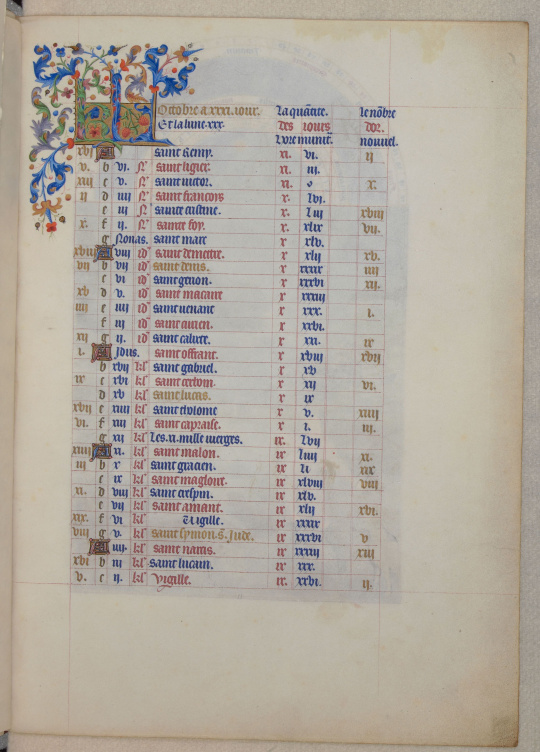 Octobre a xxxi. iour. La quantite. le nõbre
Et la lune. xxx. des iours dor.
Lvre minut. nouuel.
xvj A saint Remy. xi. vi. ij
v. b vi. saint ligier. xi. iij.
xiij c v. saint victor. xi. o x.
ij d iiij saint francoys x. lvi.
e iij sainte cristine. x. liij xviij
x. f ij. sainte foy. x. xlix vij.
g Nonas. saint marc x xlv.
xviij A viij id saint demetre. x xlij xv.
vij b vij id saint denis. x xxxix iiij
c vi id saint gereon. x xxxvi xij.
xv d v. id saint macaire x xxxiij
iiij e iiij id saint venant x xxx. i.
f iij id saint aurien. x xxvi.
xij g ij. id saint calixte. x xxi. ix
i. A Idus. saint offrant. x xviij xvij
b xvij kl saint gabriel. x xv
ix c xvi kl saint cerbon. x xij vi.
d xv kl saint lucas. x ix
xvij e xiiij kl saint x v. xiiij
vi. f xiij kl saint capraise. x i. iij.
g xij kl Les. xi. mille vierges. ix. lvij
xiiij A xi. kl saint malon. ix liiij xi.
iij b x kl saint gracien. ix li xix
c ix kl saint magloire. ix xlviij viij
xi. d viij kl saint crespin. ix xlv.
e vij kl saint amant. ix xlij xvi.
xix. f vi kl Vigille. ix xxxix
viij g v. kl saint symon. s. Jude. ix xxxvi v
A iiij. kl saint narcis. ix xxxiij xiij
xvi b iij kl saint lucain. ix xxx.
v. c ij. kl Vigille. ix. xxvi. ij.